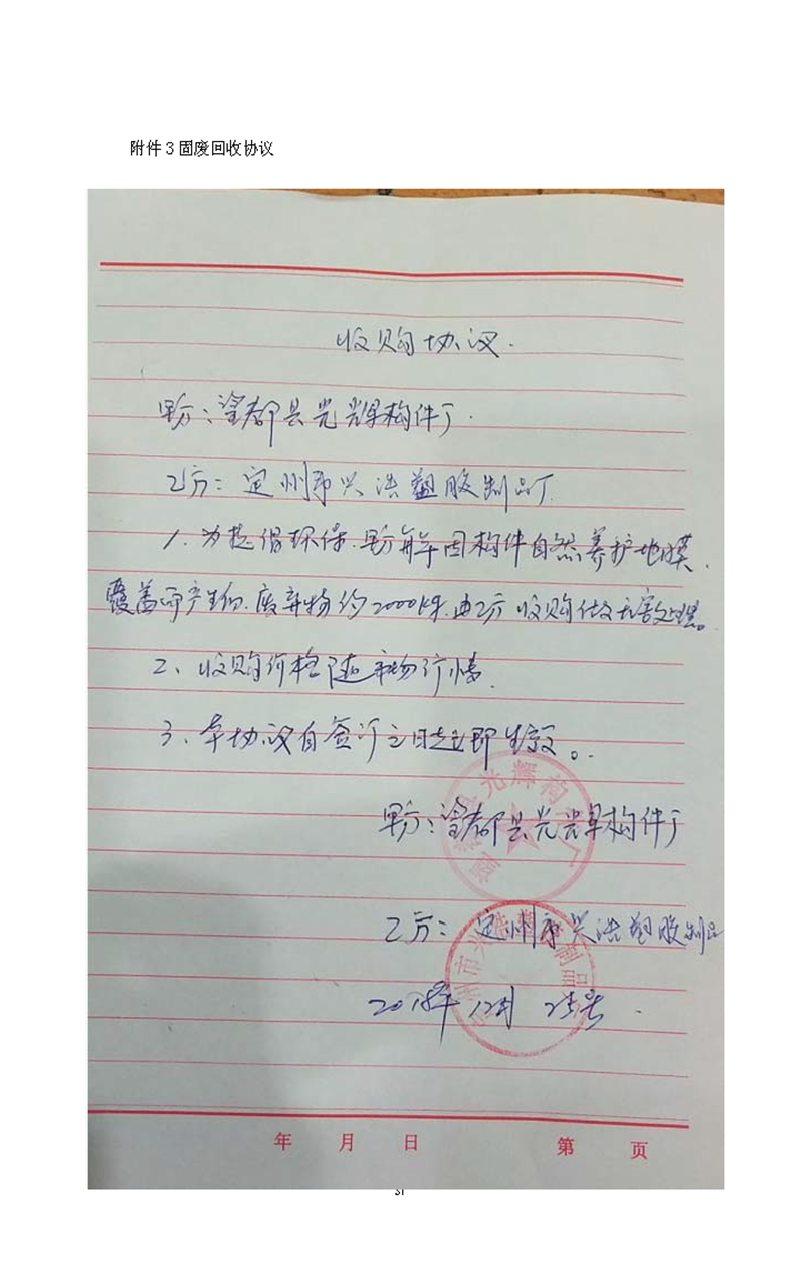 附件3固废回收协议
收购协议.
甲方:望都县光辉构件厂.
乙方:定州市兴浩塑胶制品厂
1.为提倡环保.甲方每年因构件自然养护地膜
覆盖而产生的.废弃物约2000k.由乙方收购做无害处理。
2、收购价格随市场行情.
3、本协议自签订之日起立即生效。
光辉构
甲方:望都县光辉构件厂
乙方:定州市兴浩塑胶制品
定州市兴 制品
2018年12月25号.
年 月 日 第 页
31